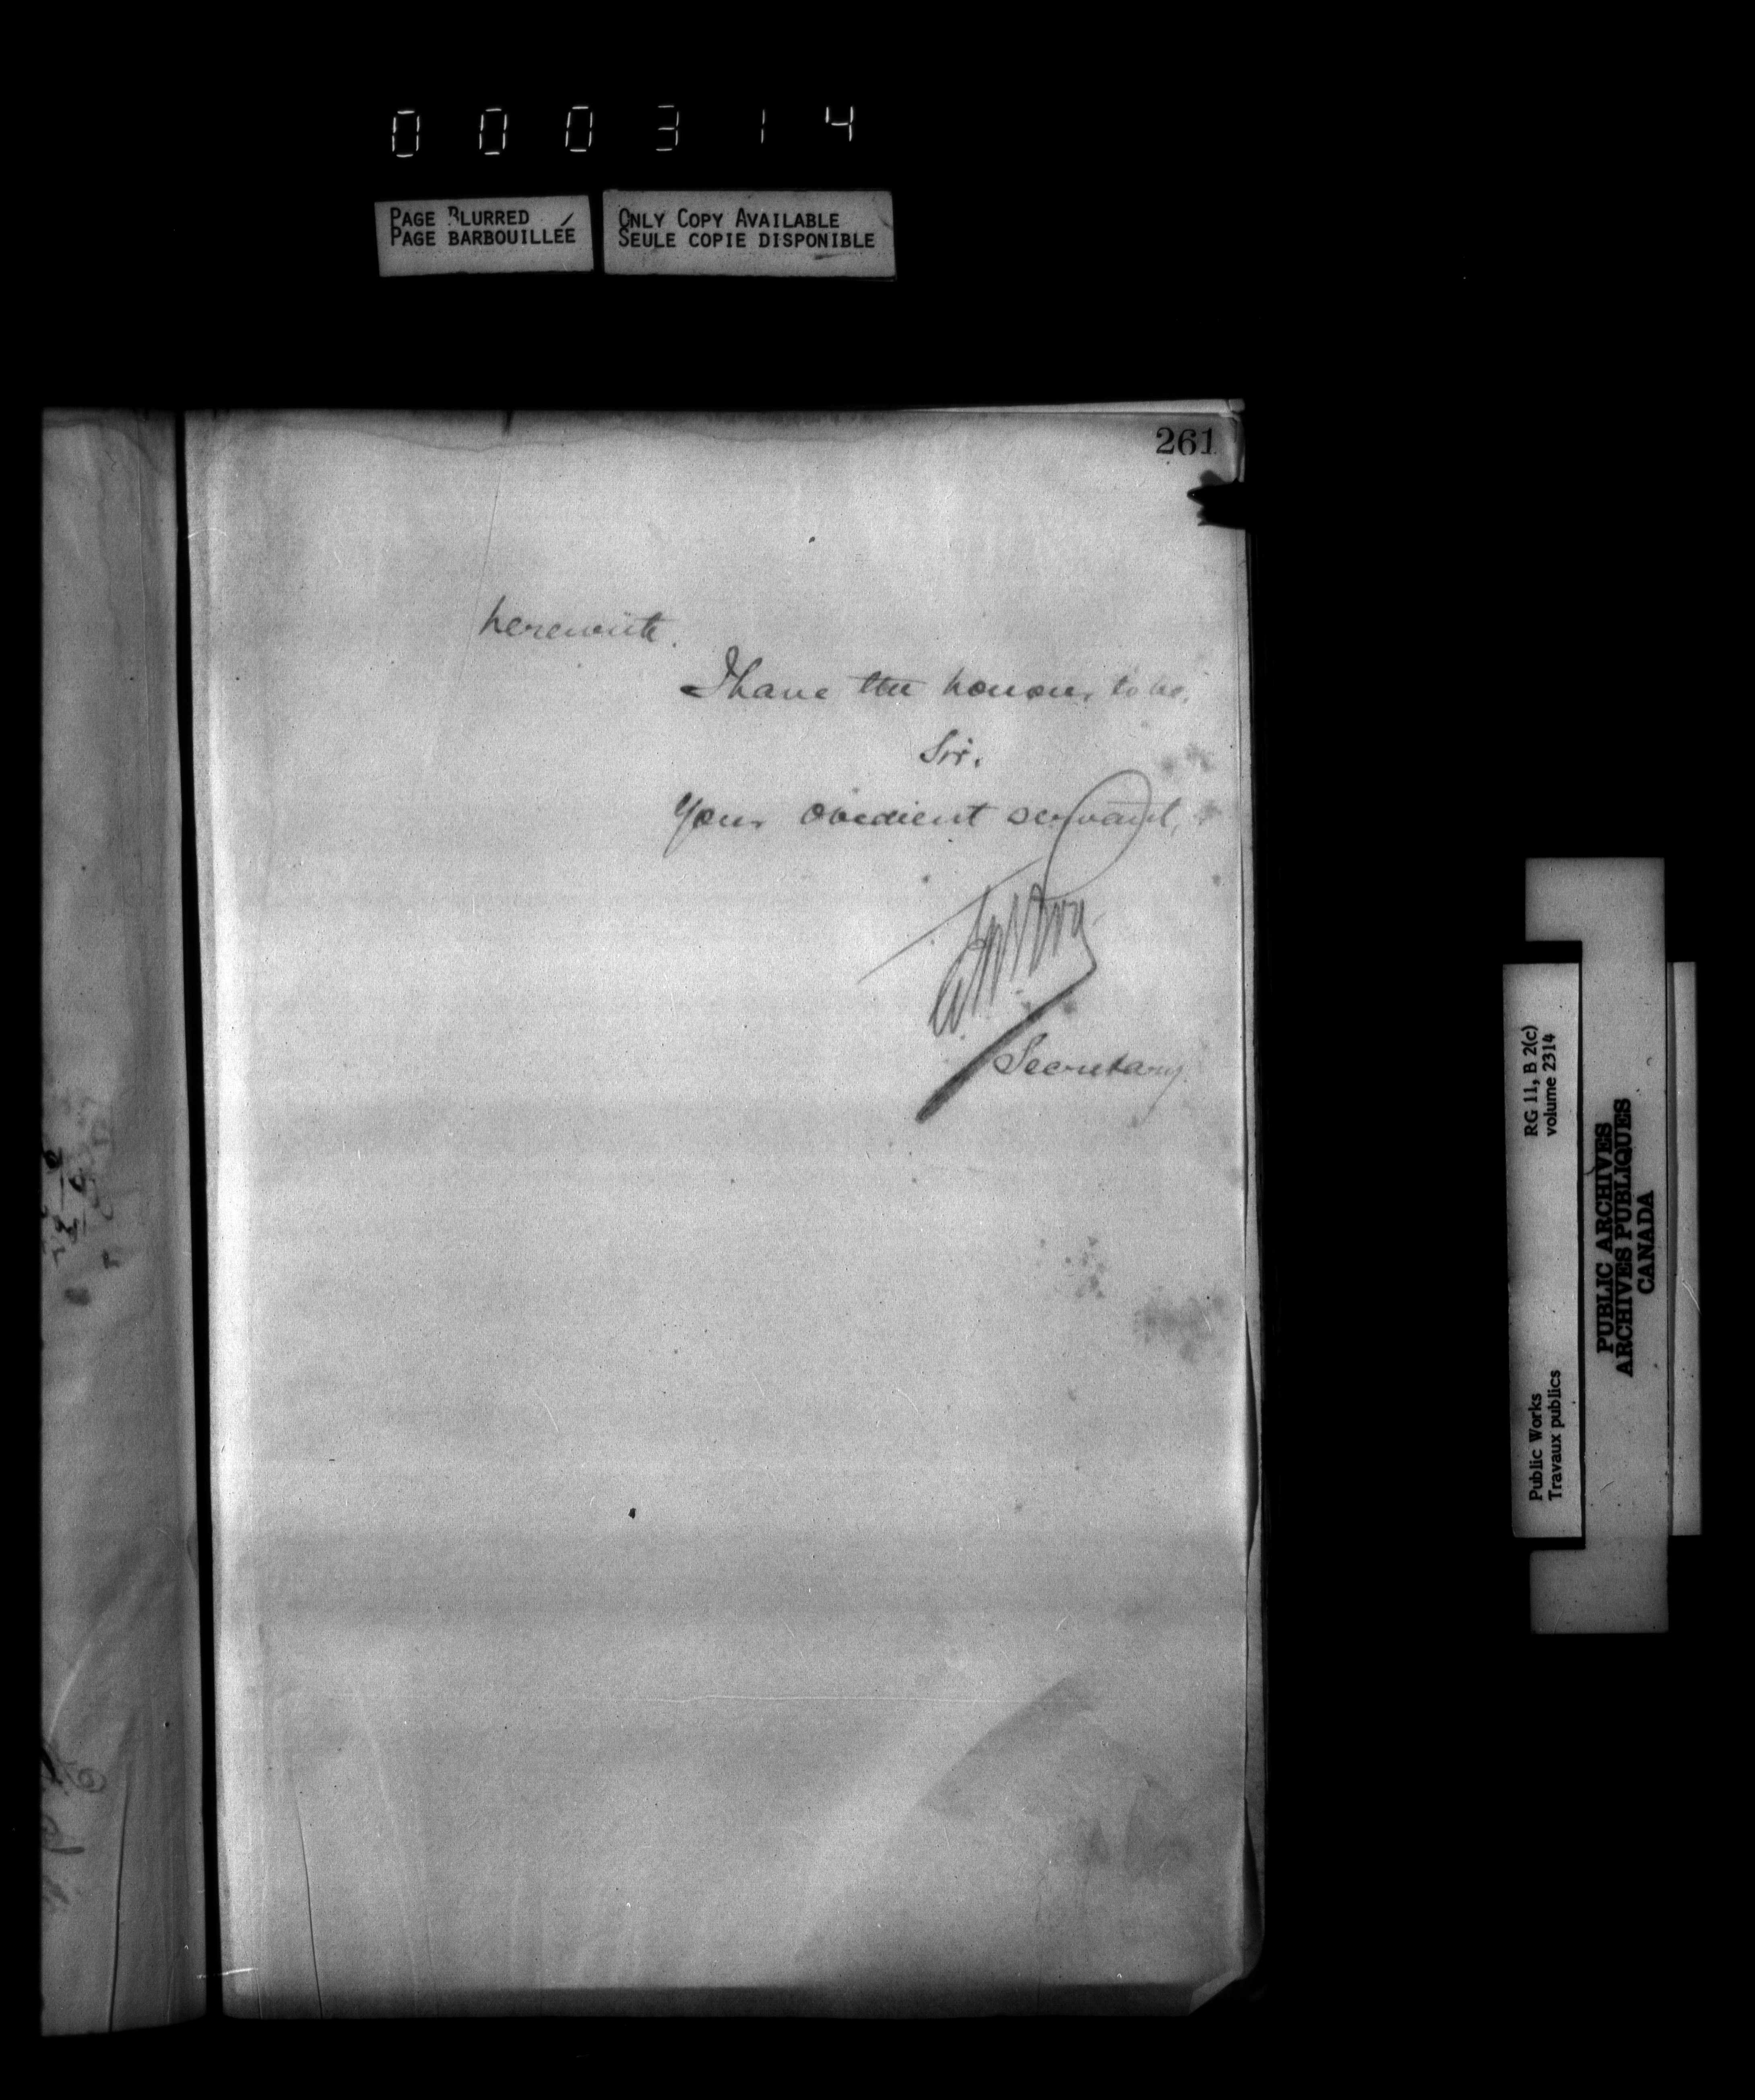 000314
PAGE BLURRED
PAGE BARBOUILLÉE
ONLY COPY AVAILABLE
SEULE COPIE DISPONIBLE
261
herewith.
I have the honour to be,
Sir,
Your obedient servant,
Secretary
RG 11, B 2(c)
volume 2314
Public Works
Travaux publics
PUBLIC ARCHIVES
ARCHIVES PUBLIQUES
CANADA